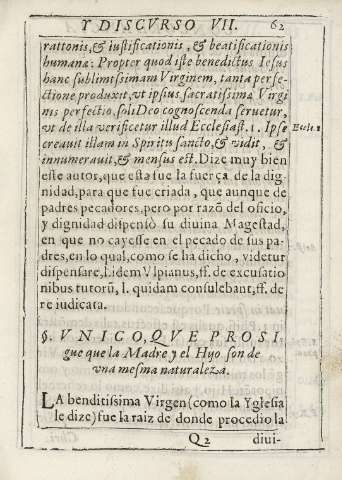 Y DISCVRSO VII. 62
rattonis,& iustificationis, & beatificationis
humanæ: Propter quod iste benedictus Iesus
hanc sublimissimam Virginem, tanta perfe-
ctione produxit, vt ipsius sacratissimæ Virgi
nis perfectio, soli Deo cognoscenda seruetur,
vt de illa verificetur illud Ecclesiast. 1. Ipse
Eccle. 1
creauit illam in Spiritu sancto, & vidit, &
innumerauit, & mensus est. Dize muy bien
este autor, que esta fue la fuerça de la dig-
nidad, para que fue criada, que aunque de
padres pecadores, pero por razõ del oficio,
y dignidad dispensò su diuina Magestad,
en que no cayesse en el pecado de sus pa-
dres, en lo qual, como se ha dicho, videtur
dispensare, l. idem Vlpianus, ff. de excusatio
nibus tutorũ, l. quidam consulebant, ff. de
re iudicata.
§. VNICO, QVE PROSI
gue que la Madre y el Hijo son de
vna mesma naturaleza.
LA benditissima Virgen (como la Yglesia
le dize) fue la raiz de donde procedio la
Q2 diui-